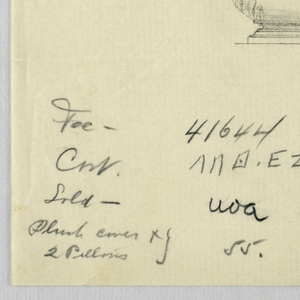 For — 41644
Cost.
Sold — uoa
Plush cover x}
2 Pillows 55.